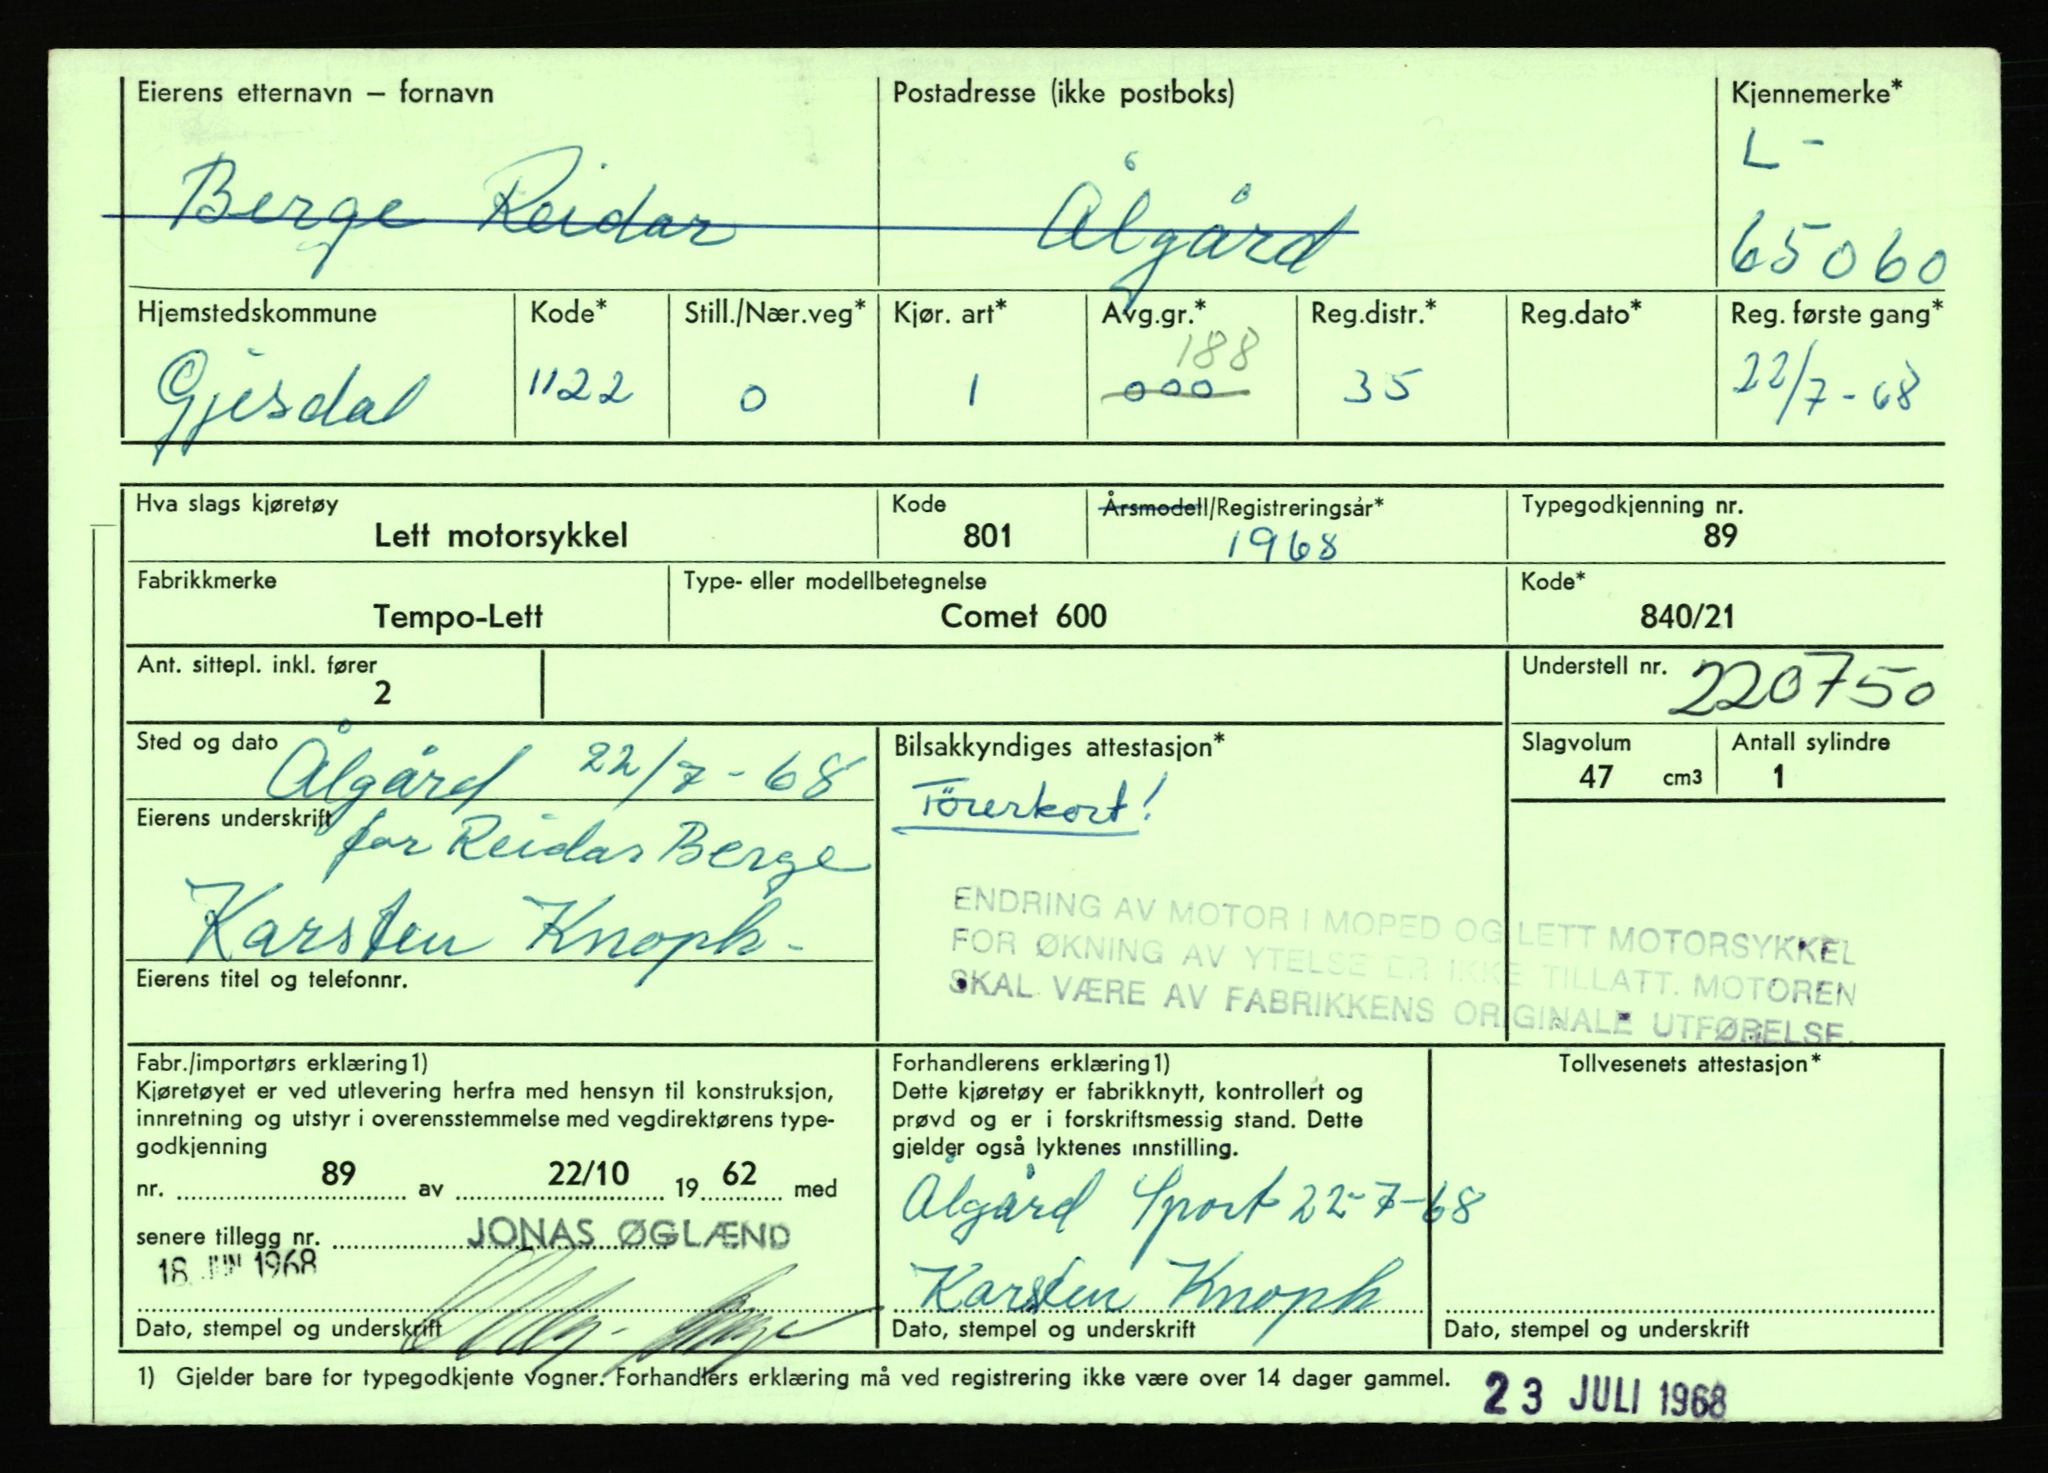 Eierens etternavn – fornavn
Postadresse (ikke postboks)
Kjennemerke*
Berge Reidar
Ålgård
L -
65060
Hjemstedskommune
Kode*
Still./Nær.veg*
Kjør. art*
Avg.gr.*
Reg.distr.*
Reg.dato*
Reg. første gang*
Gjesdal
1122
0
1
188
000
35
22/7-68
Hva slags kjøretøy
Kode
Årsmodell/Registreringsår*
Typegodkjenning nr.
Lett motorsykkel
801
1968
89
Fabrikkmerke
Type- eller modellbetegnelse
Kode*
Tempo-Lett
Comet 600
840/21
Ant. sittepl. inkl. fører
2
Understell nr.
220750
Sted og dato
Ålgård 22/7-68
Bilsakkyndiges attestasjon*
Slagvolum
47 cm3
Antall sylindre
1
Førerkort!
Eierens underskrift
for Reidar Berge
Karsten Knoph-
ENDRING AV MOTOR I MOPED OG LETT MOTORSYKKEL
FOR ØKNING AV YTELSE ER IKKE TILLATT. MOTOREN
SKAL VÆRE AV FABRIKKENS ORIGINALE UTFØRELSE.
Eierens titel og telefonnr.
Fabr./importørs erklæring1)
Kjøretøyet er ved utlevering herfra med hensyn til konstruksjon,
innretning og utstyr i overensstemmelse med vegdirektørens type-
godkjenning
nr. 89 av 22/10 19 62 med
senere tillegg nr. JONAS ØGLÆND
18. JUN 1968
Dato, stempel og underskrift
Forhandlerens erklæring1)
Dette kjøretøy er fabrikknytt, kontrollert og
prøvd og er i forskriftsmessig stand. Dette
gjelder også lyktenes innstilling.
Ålgård Sport 22-7-68
Karsten Knoph
Dato, stempel og underskrift
Tollvesenets attestasjon*
Dato, stempel og underskrift
1) Gjelder bare for typegodkjente vogner. Forhandlers erklæring må ved registrering ikke være over 14 dager gammel.
23 JULI 1968